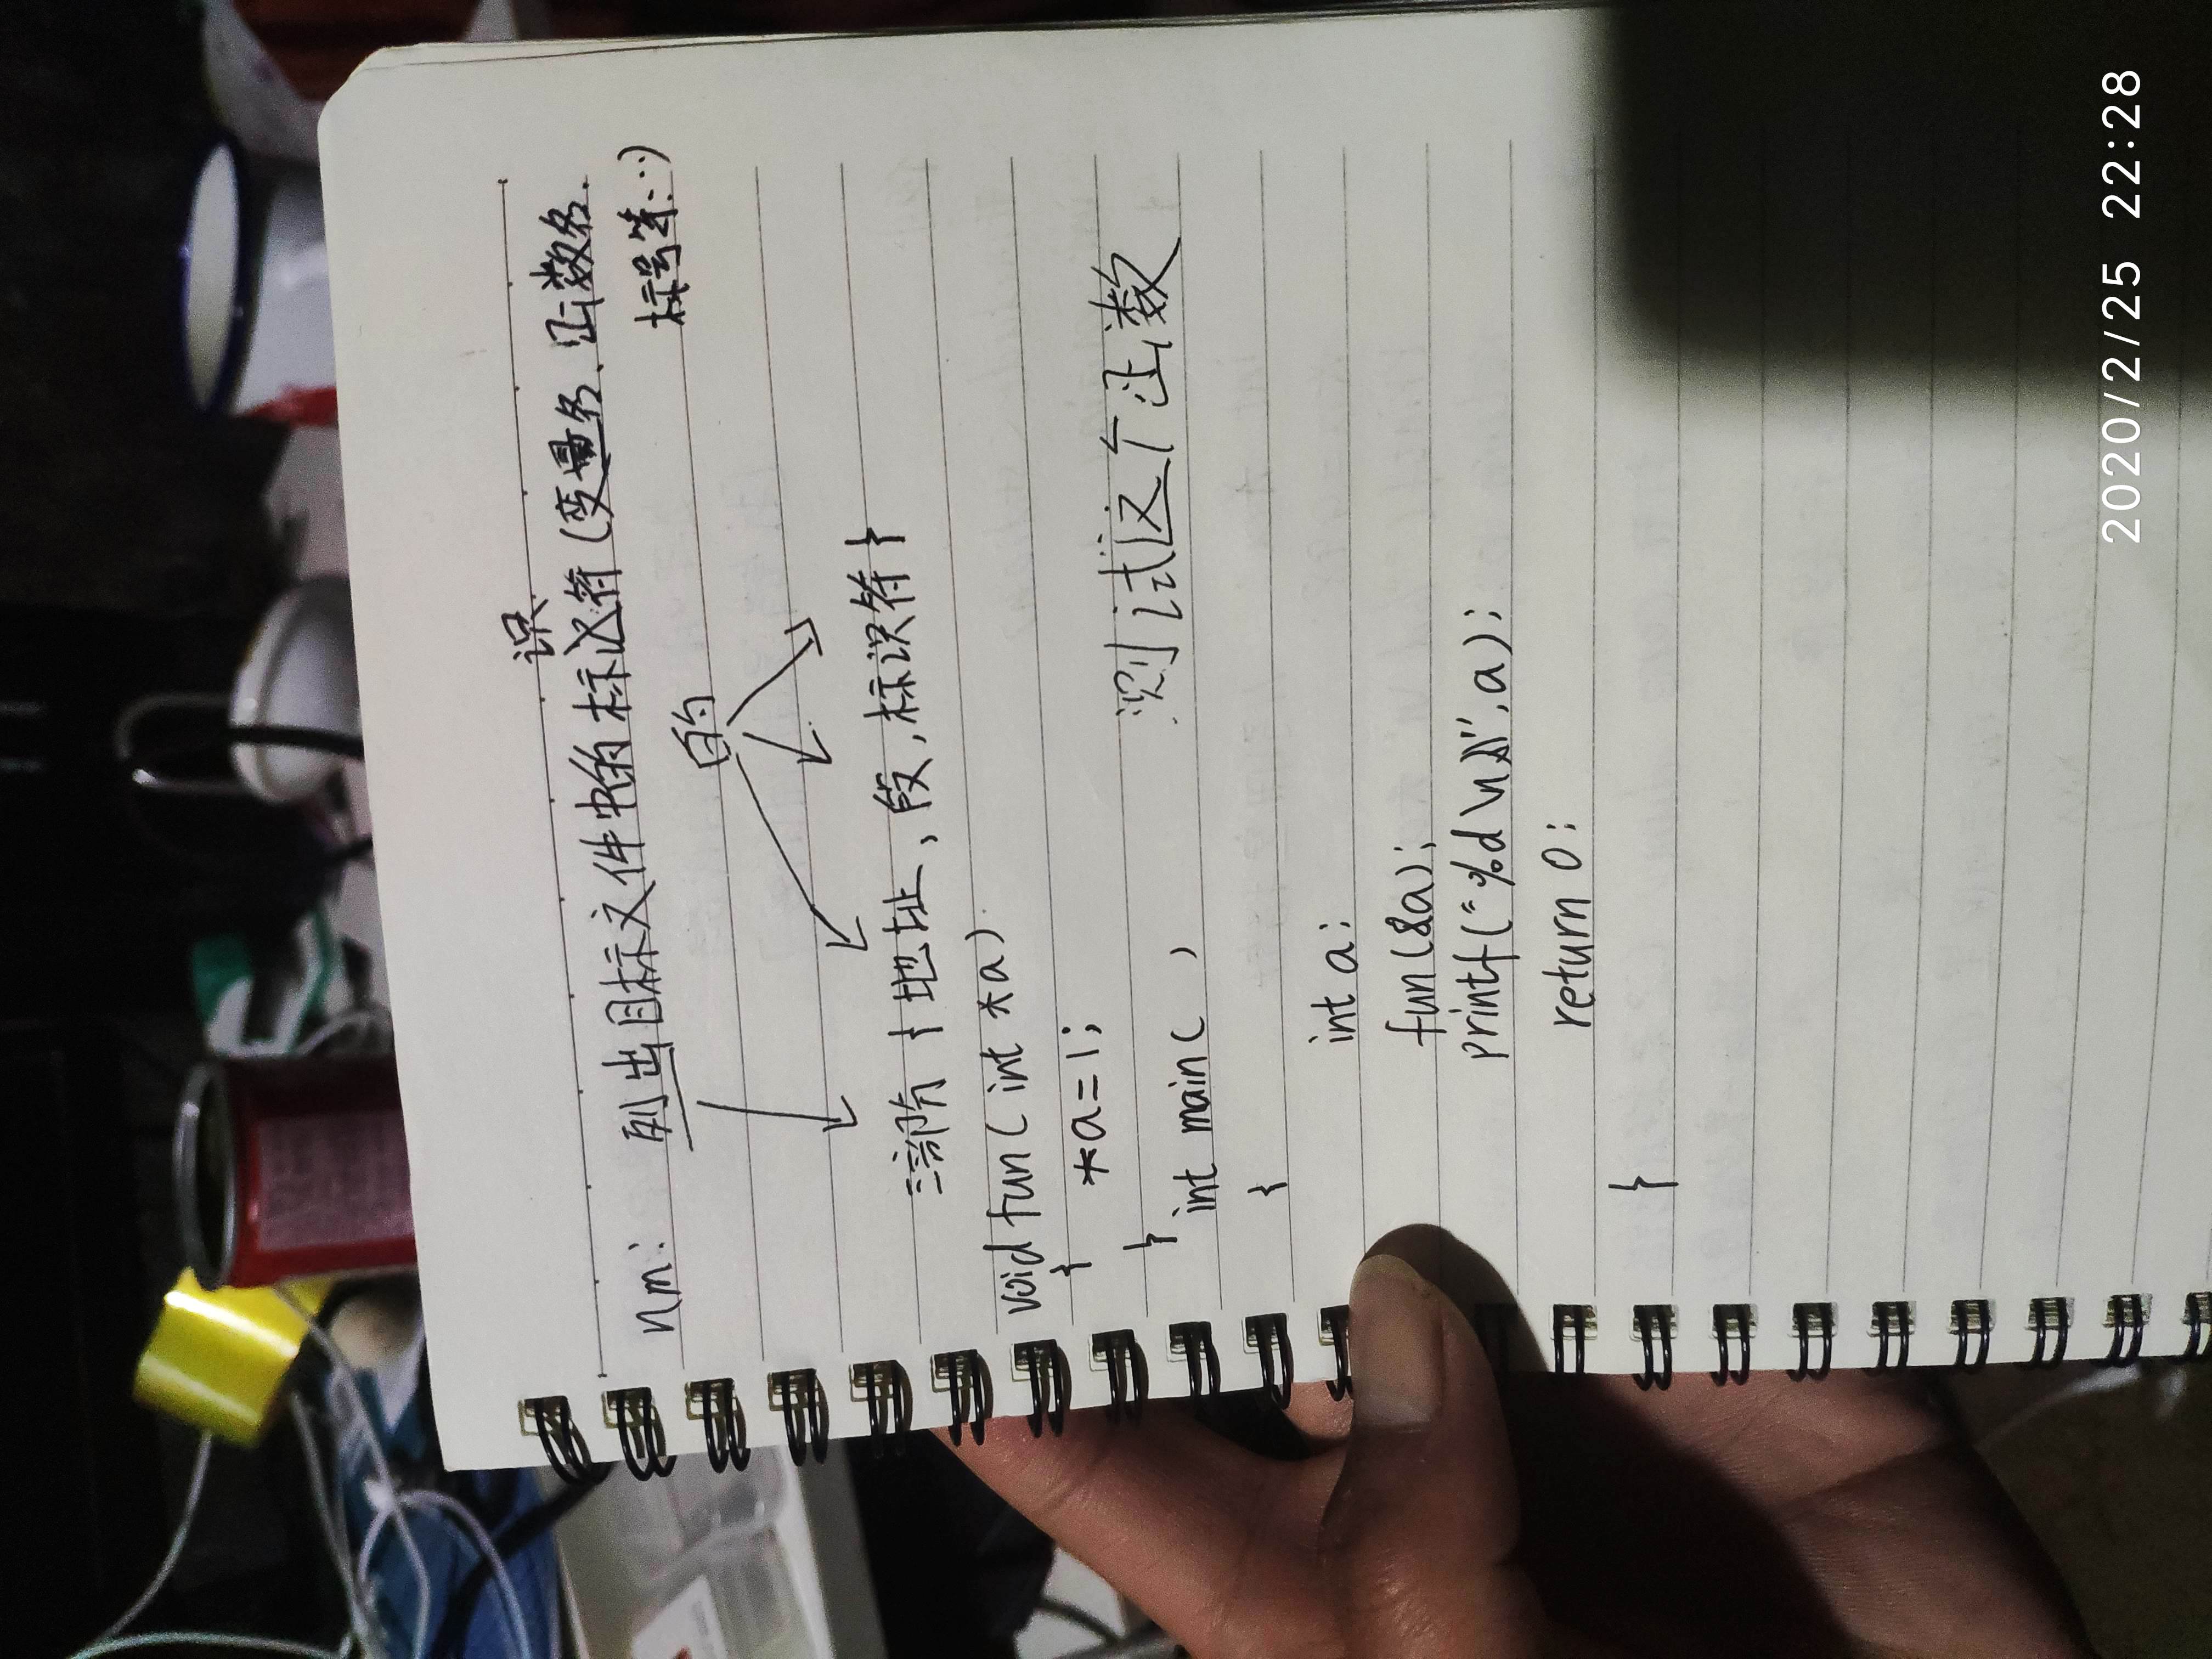 nm: 列出目标文件中的标识符(变量名、函数名、
标号等…)
的
三部分{地址,段,标识符}
void fun( int *a)
{ *a=1;
}
测试这个函数
int main( )
{
int a;
fun(&a);
printf("%d\n",a);
return 0;
}
2020/2/25 22:28